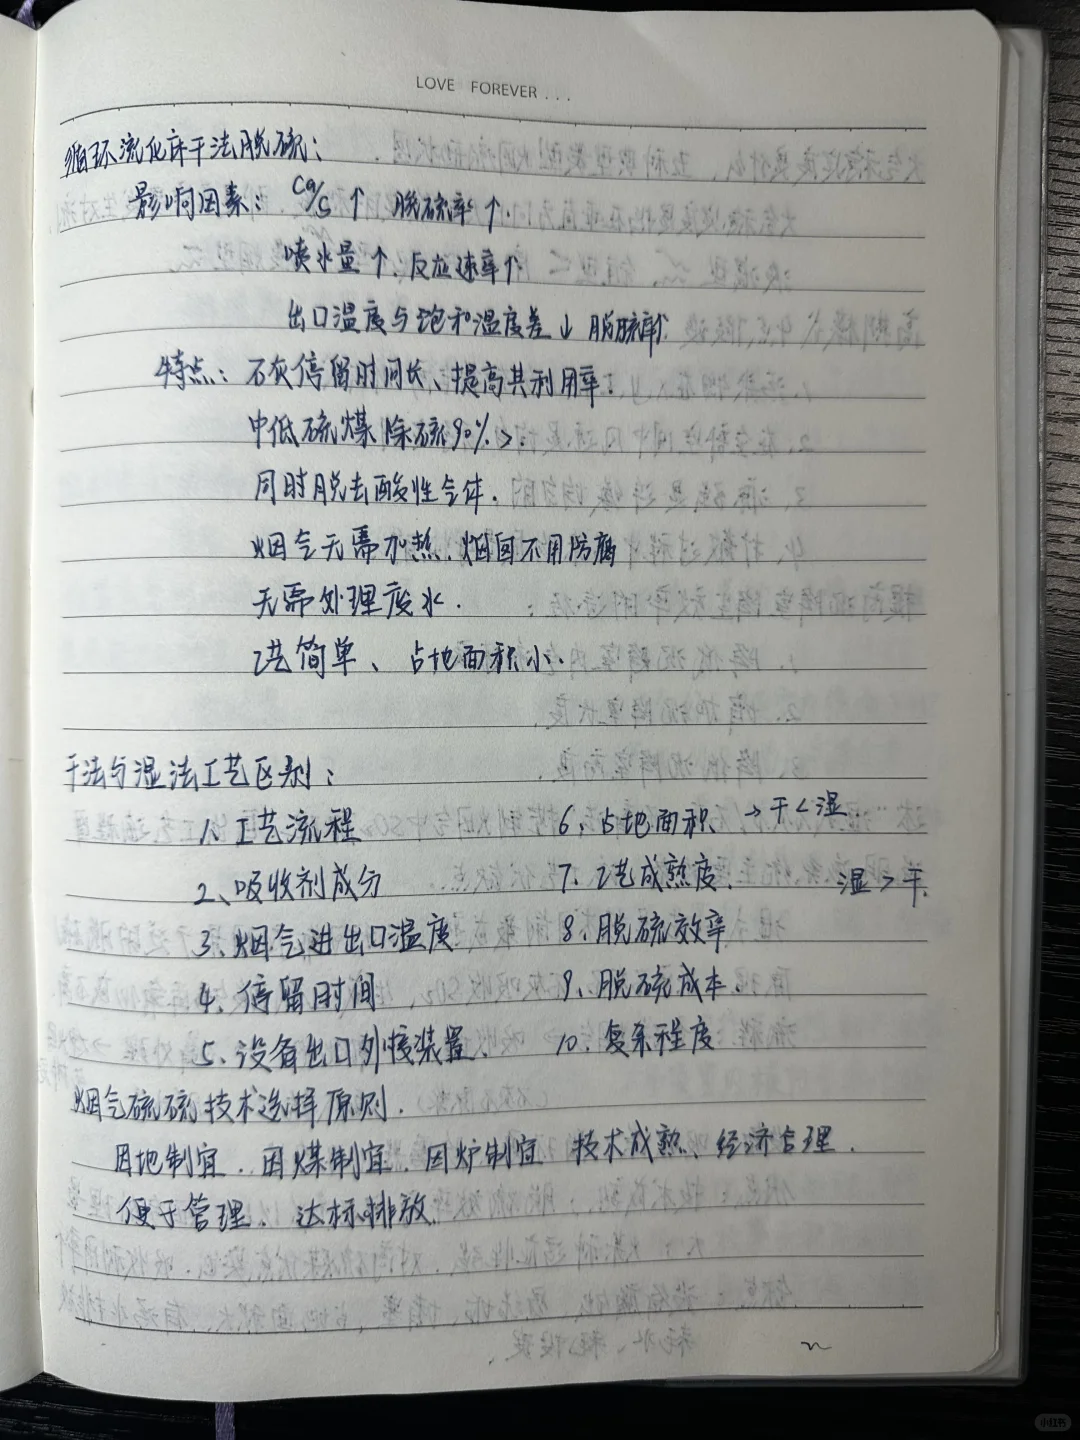 LOVE FOREVER...
循环流化床干法脱硫:
影响因素: Ca/S ↑ 脱硫率↑.
喷水量↑, 反应速率↑
出口温度与饱和温度差↓ 脱硫率↑
特点: 石灰停留时间长、提高其利用率.
中低硫煤 除硫90%>.
同时脱去酸性气体.
烟气无需加热. 烟囱不用防腐
无需处理废水.
工艺简单、占地面积小.
干法与湿法工艺区别:
1. 工艺流程 6、占地面积 → 干<湿.
2、吸收剂成分 7. 工艺成熟度. 湿>干.
3、烟气进出口温度 8、脱硫效率
4、停留时间 9、脱硫成本
5、设备出口外接装置、 10、复杂程度
烟气硫硫技术选择原则.
因地制宜. 因煤制宜. 因炉制宜 技术成熟、经济合理.
便于管理. 达标排放.
小红书